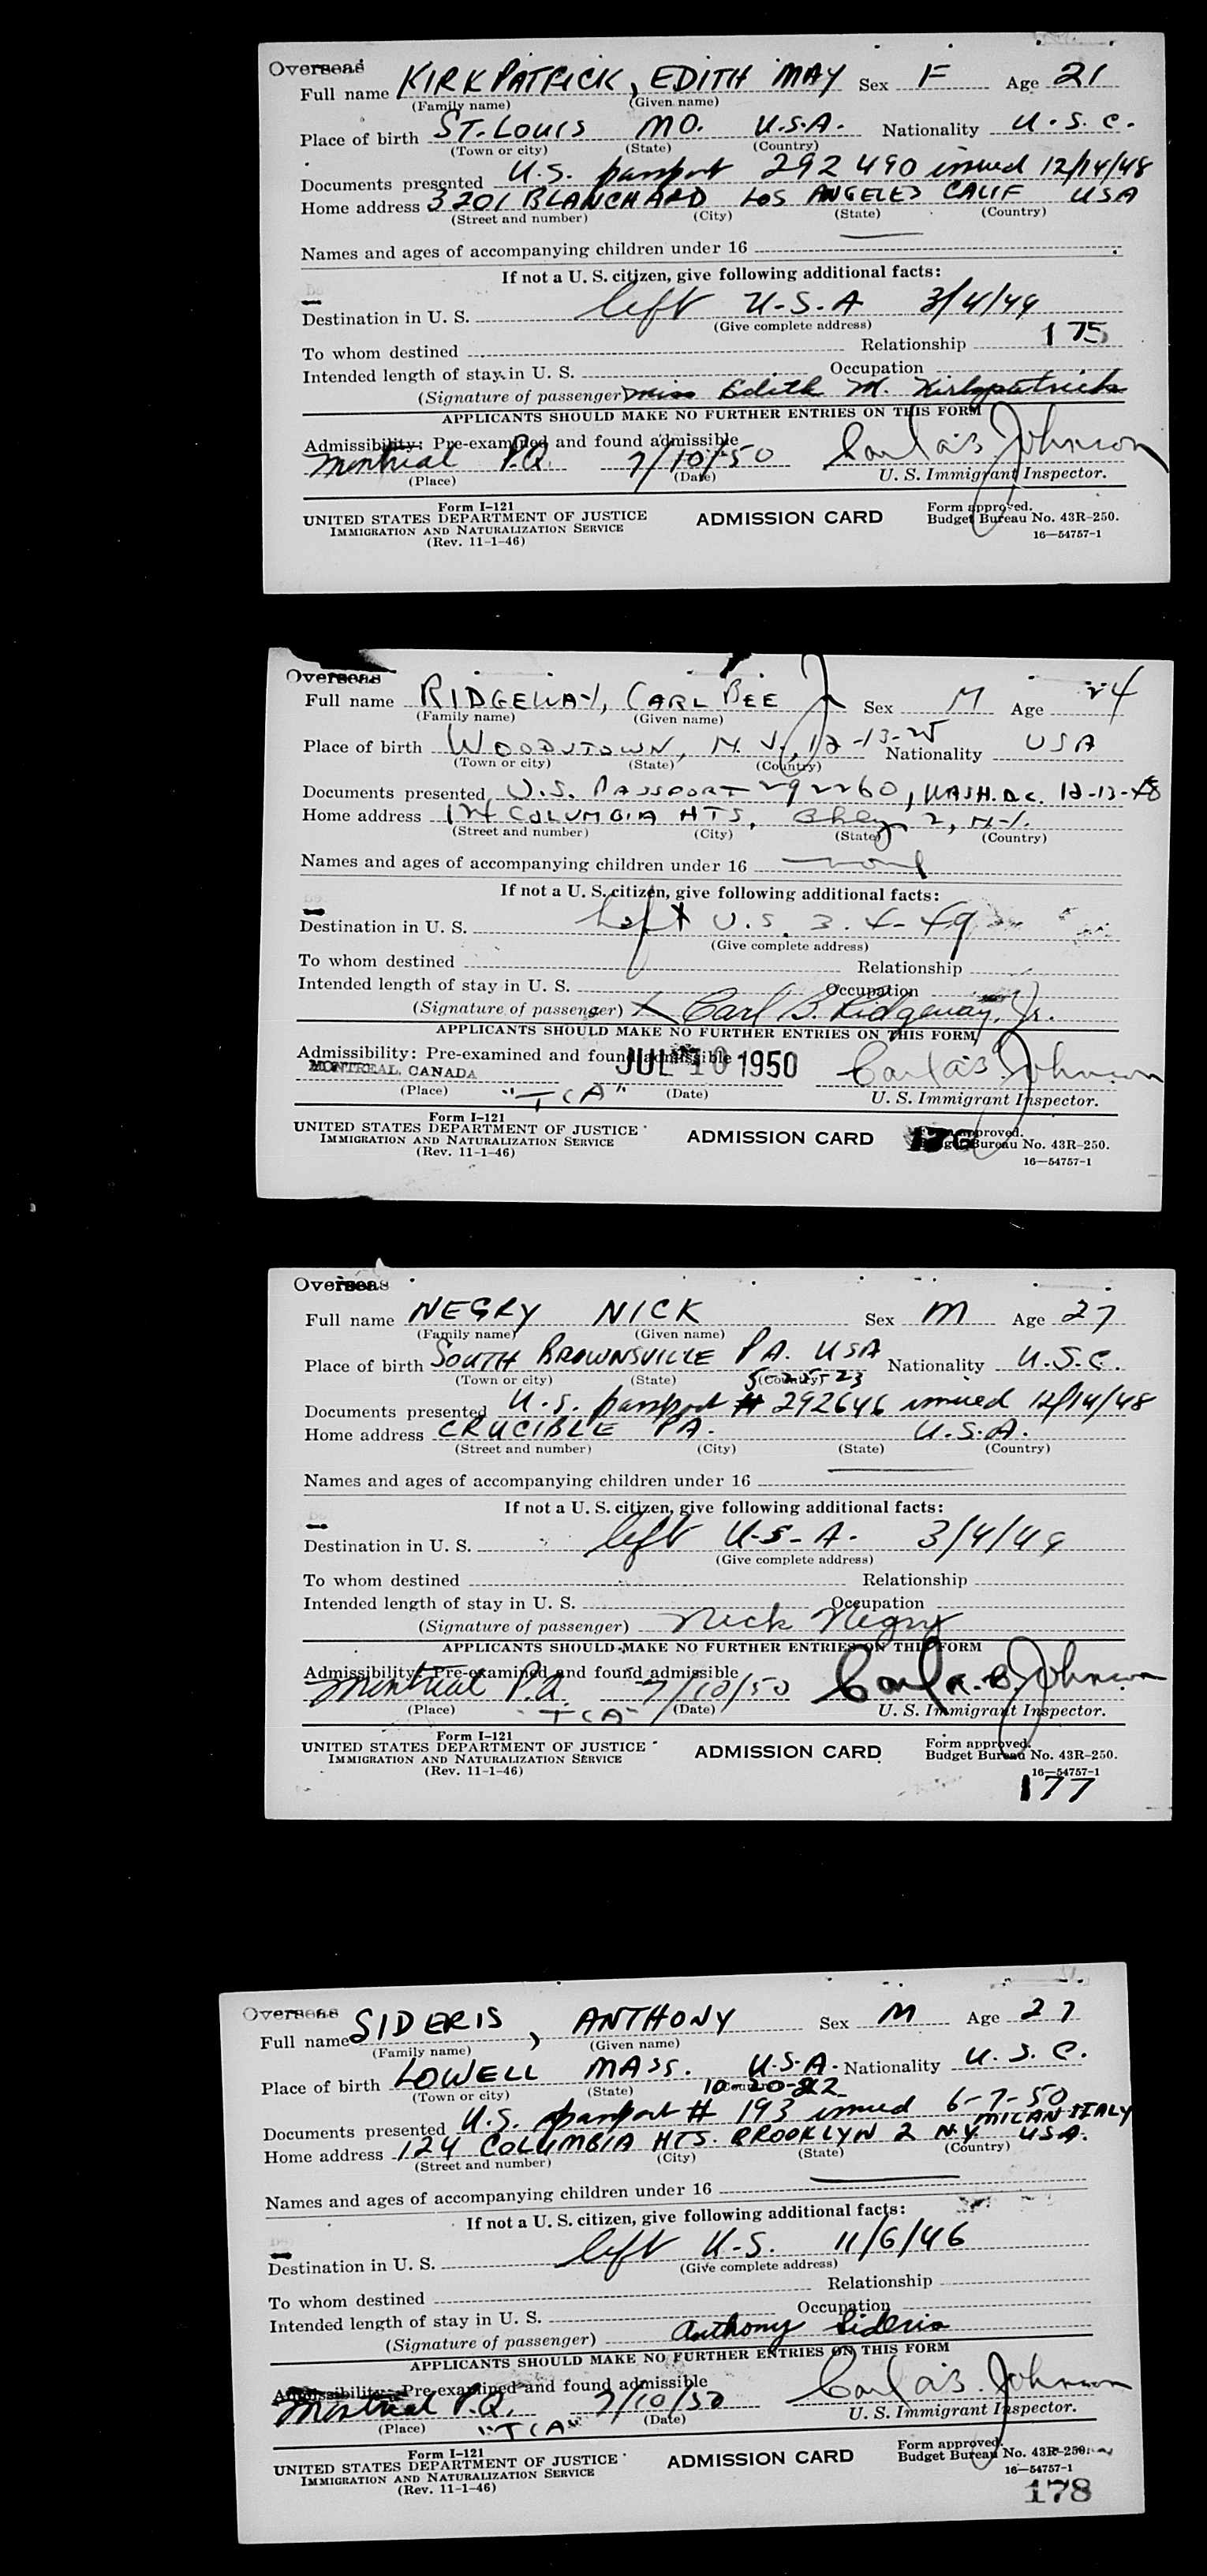 Overseas
Full name KIRKPATRICK, EDITH MAY Sex F Age 21
(Family name) (Given name)
Place of birth ST. LOUIS MO. U.S.A. Nationality U.S.C.
(Town or city) (State) (Country)
Documents presented U.S. passport 292490 issued 12/14/48
Home address 3201 BLANCHARD LOS ANGELES CALIF USA
(Street and number) (City) (State) (Country)
Names and ages of accompanying children under 16
If not a U. S. citizen, give following additional facts:
Destination in U. S. left U.S.A 3/4/49
(Give complete address)
To whom destined Relationship 175
Intended length of stay in U. S. Occupation
(Signature of passenger) Miss Edith M. Kirkpatrick
APPLICANTS SHOULD MAKE NO FURTHER ENTRIES ON THIS FORM
Admissibility: Pre-examined and found admissible
Montreal P.Q. 7/10/50 Johnson
(Place) (Date) U. S. Immigrant Inspector.
Form I-121 Form approved.
UNITED STATES DEPARTMENT OF JUSTICE ADMISSION CARD Budget Bureau No. 43R-250.
IMMIGRATION AND NATURALIZATION SERVICE
(Rev. 11-1-46) 16—54757-1
Overseas
Full name RIDGEWAY, CARL BEE Jr Sex M Age 24
(Family name) (Given name)
Place of birth WOODSTOWN, N.J., 12-13-25 Nationality USA
(Town or city) (State) (Country)
Documents presented U.S. PASSPORT 292260, WASH. D.C. 12-13-48
Home address 124 COLUMBIA HTS, Bklyn 2, N.Y.
(Street and number) (City) (State) (Country)
Names and ages of accompanying children under 16 none
If not a U. S. citizen, give following additional facts:
Destination in U. S. left U.S. 3-4-49
(Give complete address)
To whom destined Relationship
Intended length of stay in U. S. Occupation
(Signature of passenger) X Carl B. Ridgeway, Jr.
APPLICANTS SHOULD MAKE NO FURTHER ENTRIES ON THIS FORM
Admissibility: Pre-examined and found admissible
MONTREAL, CANADA JUL 10 1950 Johnson
(Place) "TCA" (Date) U. S. Immigrant Inspector.
Form I-121 Form approved.
UNITED STATES DEPARTMENT OF JUSTICE ADMISSION CARD 176 Budget Bureau No. 43R-250.
IMMIGRATION AND NATURALIZATION SERVICE
(Rev. 11-1-46) 16—54757-1
Overseas
Full name NEGRY NICK Sex M Age 27
(Family name) (Given name)
Place of birth SOUTH BROWNSVILLE PA. USA Nationality U.S.C.
(Town or city) (State) (Country)
Documents presented U.S. passport # 292646 issued 12/14/48
Home address CRUCIBLE PA. U.S.A.
(Street and number) (City) (State) (Country)
Names and ages of accompanying children under 16
If not a U. S. citizen, give following additional facts:
Destination in U. S. left U.S.A. 3/4/49
(Give complete address)
To whom destined Relationship
Intended length of stay in U. S. Occupation
(Signature of passenger) Nick Negry
APPLICANTS SHOULD MAKE NO FURTHER ENTRIES ON THIS FORM
Admissibility: Pre-examined and found admissible
Montreal P.Q. 7/10/50 Johnson
(Place) "TCA" (Date) U. S. Immigrant Inspector.
Form I-121 Form approved.
UNITED STATES DEPARTMENT OF JUSTICE ADMISSION CARD Budget Bureau No. 43R-250.
IMMIGRATION AND NATURALIZATION SERVICE
(Rev. 11-1-46) 16—54757-1
177
Overseas
Full name SIDERIS, ANTHONY Sex M Age 27
(Family name) (Given name)
Place of birth LOWELL MASS. U.S.A. Nationality U.S.C.
(Town or city) (State) 10-20-22
Documents presented U.S. passport # 193 issued 6-7-50 MILAN ITALY
Home address 124 COLUMBIA HTS. BROOKLYN 2 N.Y. USA.
(Street and number) (City) (State) (Country)
Names and ages of accompanying children under 16
If not a U. S. citizen, give following additional facts:
Destination in U. S. left U.S. 11/6/46
(Give complete address)
To whom destined Relationship
Intended length of stay in U. S. Occupation
(Signature of passenger) Anthony Sideris
APPLICANTS SHOULD MAKE NO FURTHER ENTRIES ON THIS FORM
Admissibility: Pre-examined and found admissible
Montreal P.Q. 7/10/50 Johnson
(Place) "TCA" (Date) U. S. Immigrant Inspector.
Form I-121 Form approved.
UNITED STATES DEPARTMENT OF JUSTICE ADMISSION CARD Budget Bureau No. 43R-250.
IMMIGRATION AND NATURALIZATION SERVICE
(Rev. 11-1-46) 16—54757-1
178